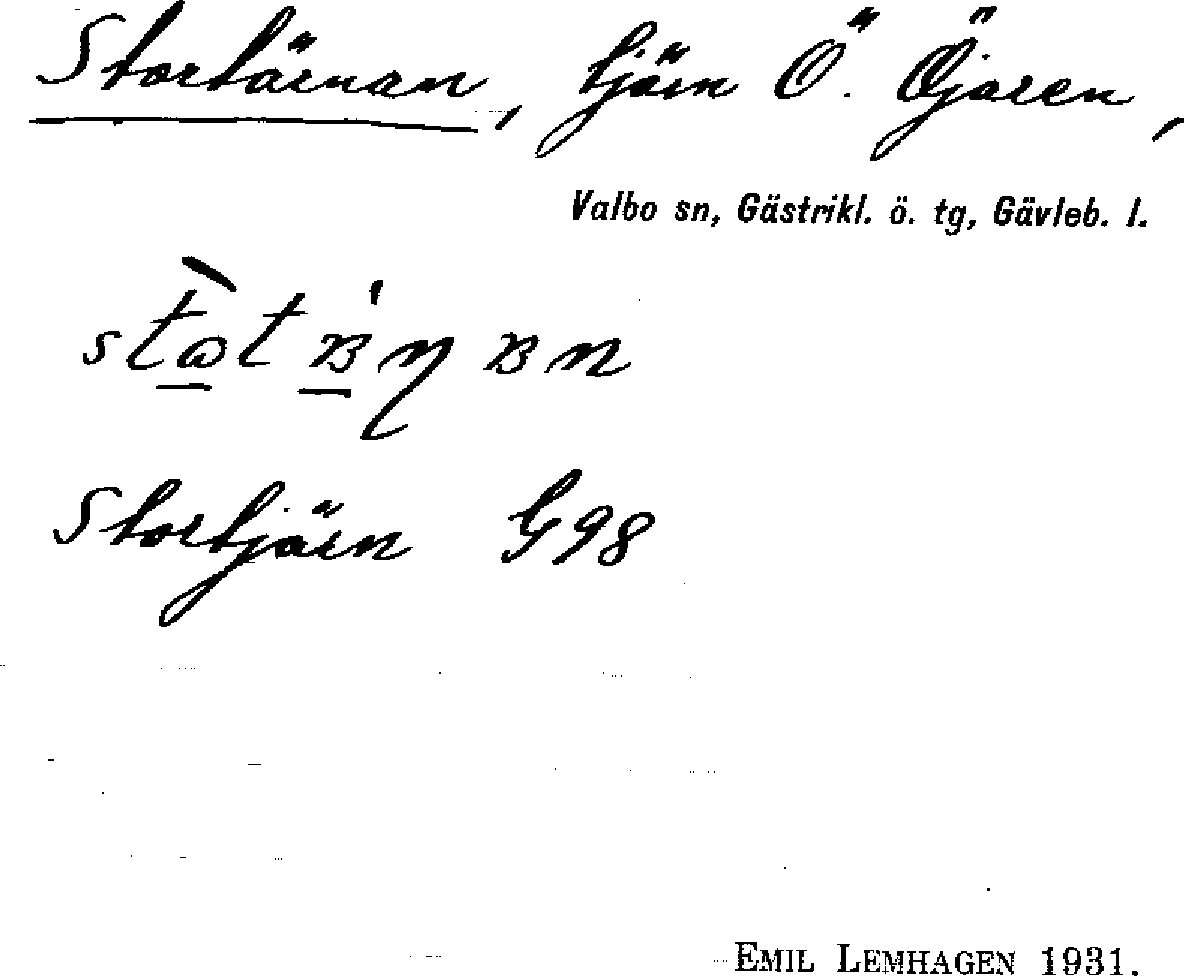 Stortärnan, tjärn Ö. Öjaren,
Valbo sn, Gästrikl. ö. tg, Gävleb. l.
Stortjärn G98
EMIL LEMHAGEN 1931.